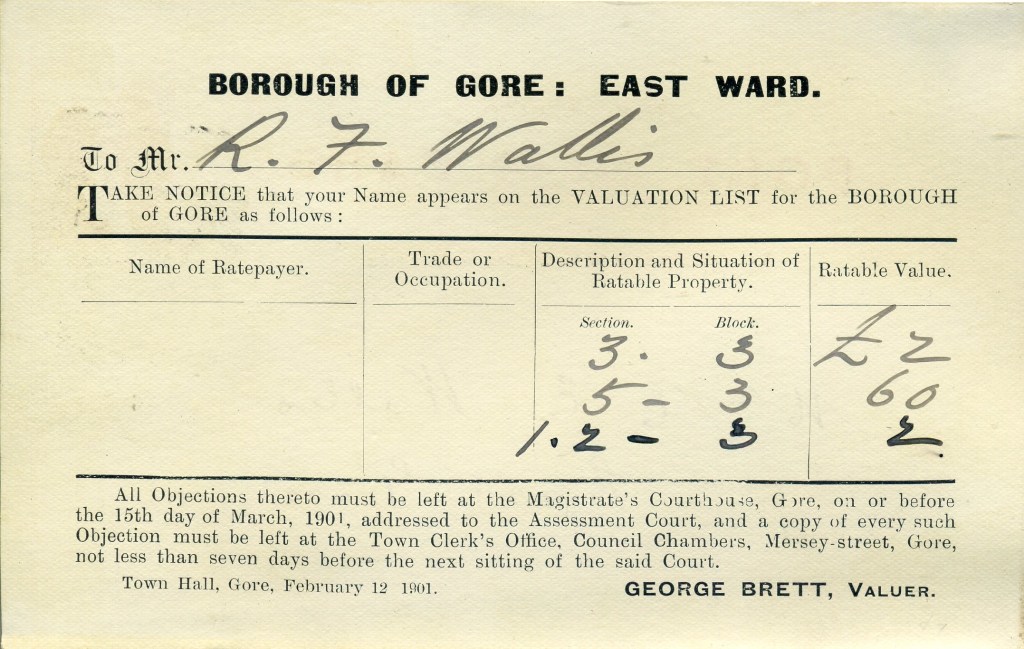 BOROUGH OF GORE: EAST WARD.
To Mr. R. F. Wallis
TAKE NOTICE that your Name appears on the VALUATION LIST for the BOROUGH
of GORE as follows:
Name of Ratepayer.
Trade or
Occupation.
Description and Situation of
Ratable Property.
Ratable Value.
Section. Block.
3. 3 £2
5 - 3 60
1.2 - 3 2
All Objections thereto must be left at the Magistrate's Courthouse, Gore, on or before
the 15th day of March, 1901, addressed to the Assessment Court, and a copy of every such
Objection must be left at the Town Clerk's Office, Council Chambers, Mersey-street, Gore,
not less than seven days before the next sitting of the said Court.
Town Hall, Gore, February 12 1901.
GEORGE BRETT, VALUER.